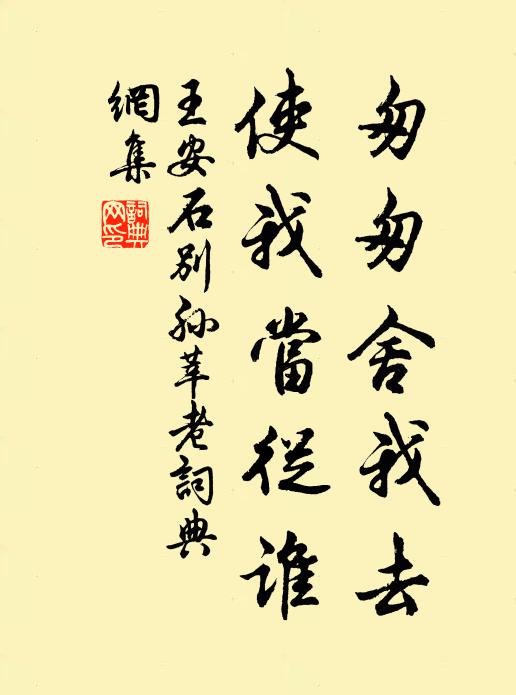 匆匆舍我去
使我當從誰
王安石別孙莘老詞典
網集
詞典
网印